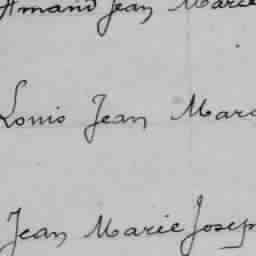 Amand Jean Marie
Louis Jean Marc
Jean Marie Joseph